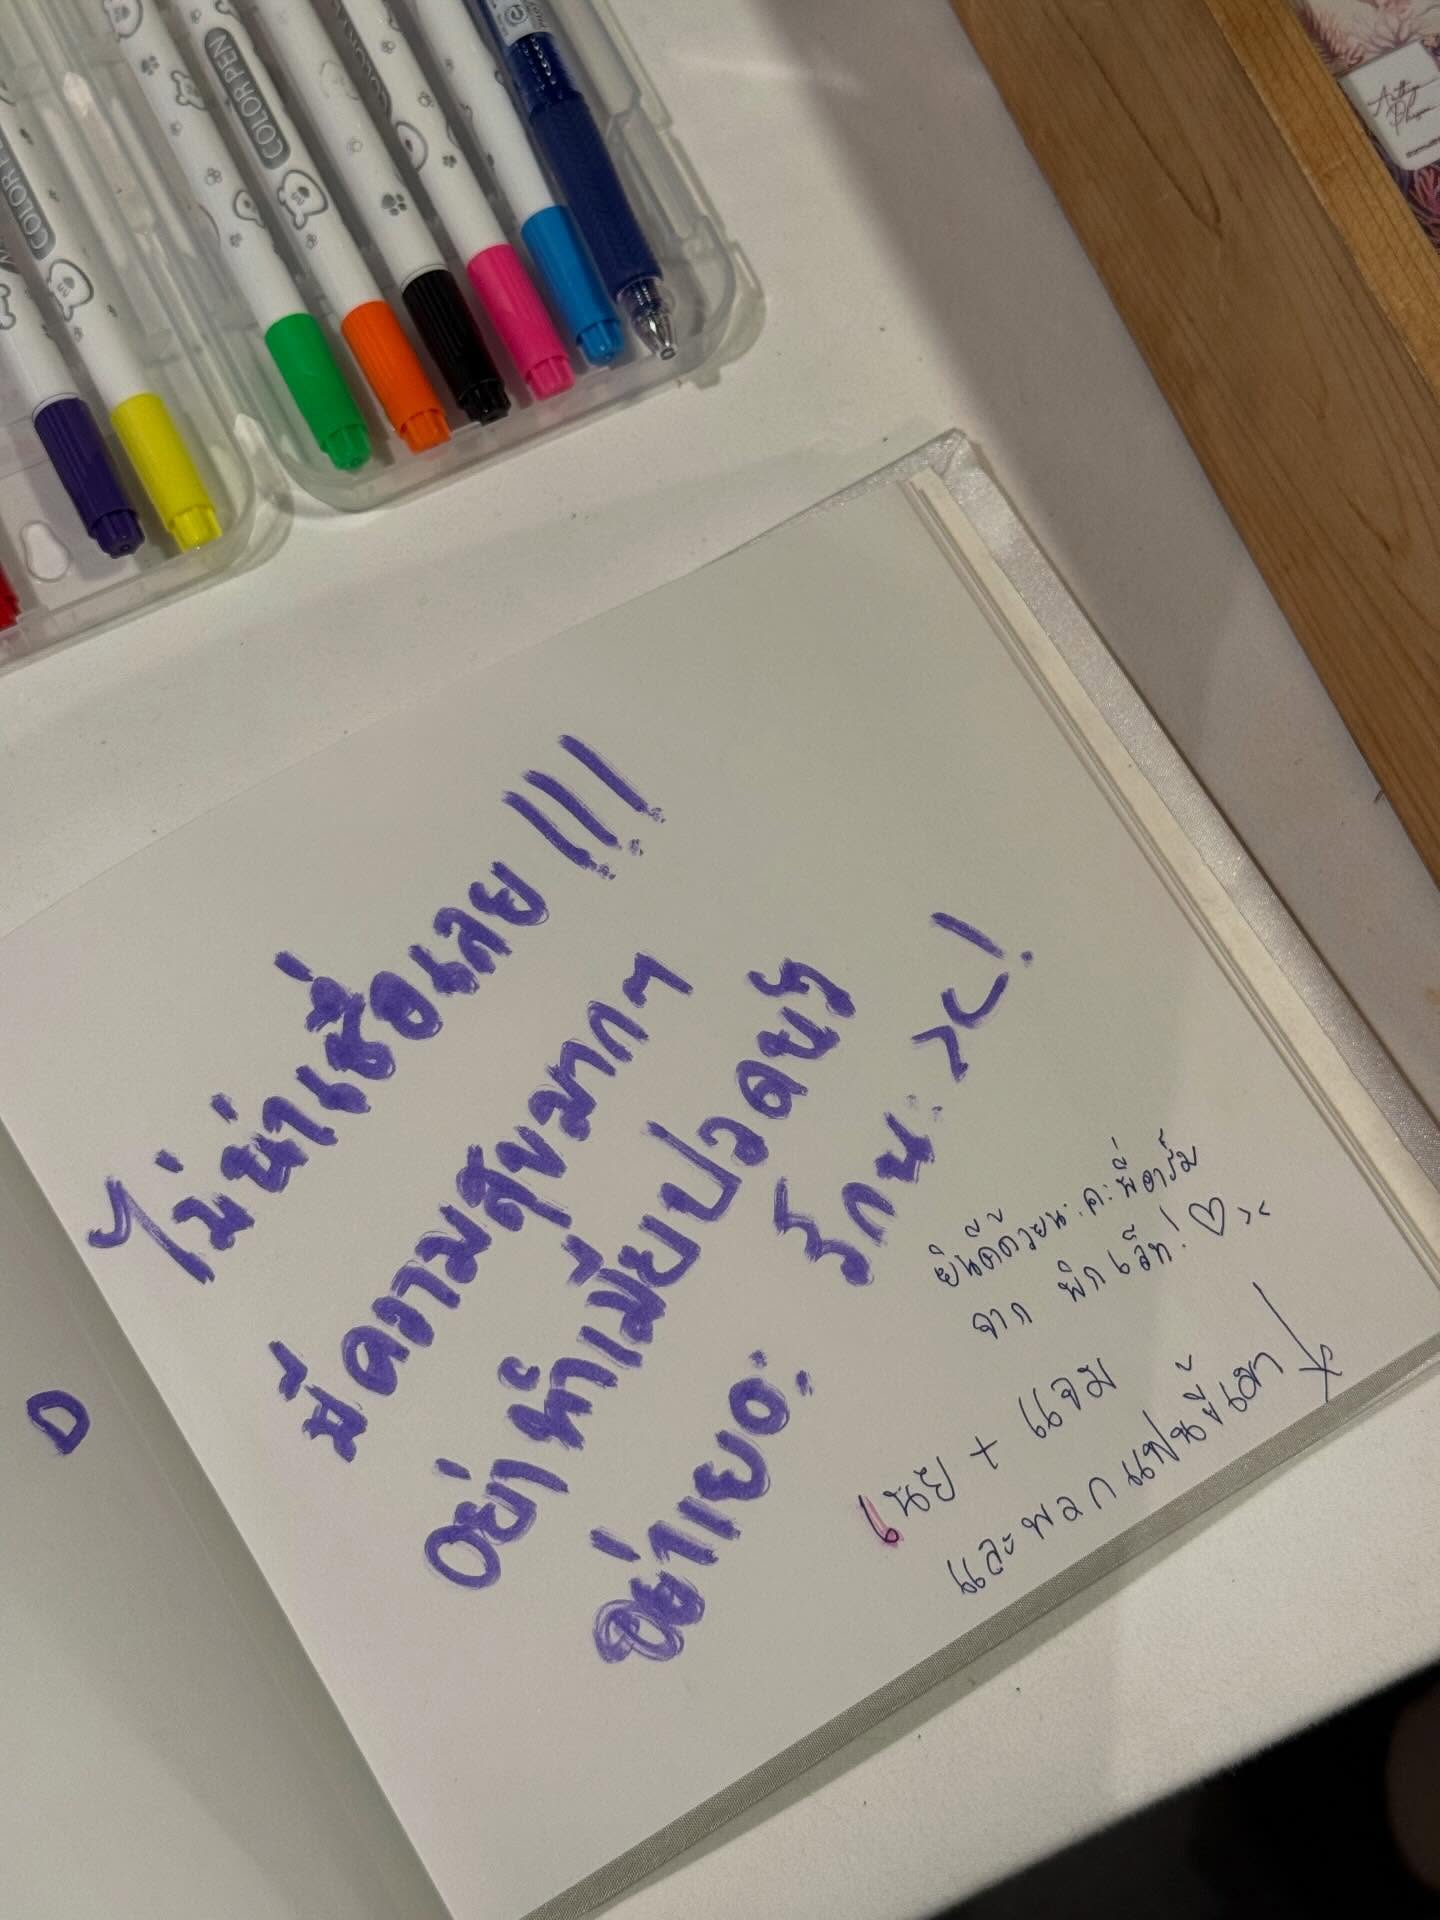 COLOR PEN
COLOR PEN
ไม่น่าเชื่อเลย!!!
มีความสุขมากๆ
อย่าทำเมียปวดหัว
อย่าเยอะ รักนะ ><!
D
ยินดีด้วยนะคะพี่อาร์ม
จาก พิกเล็ท! ♡ ><
เนย + แจม
และพลกแฟนขี้เมา